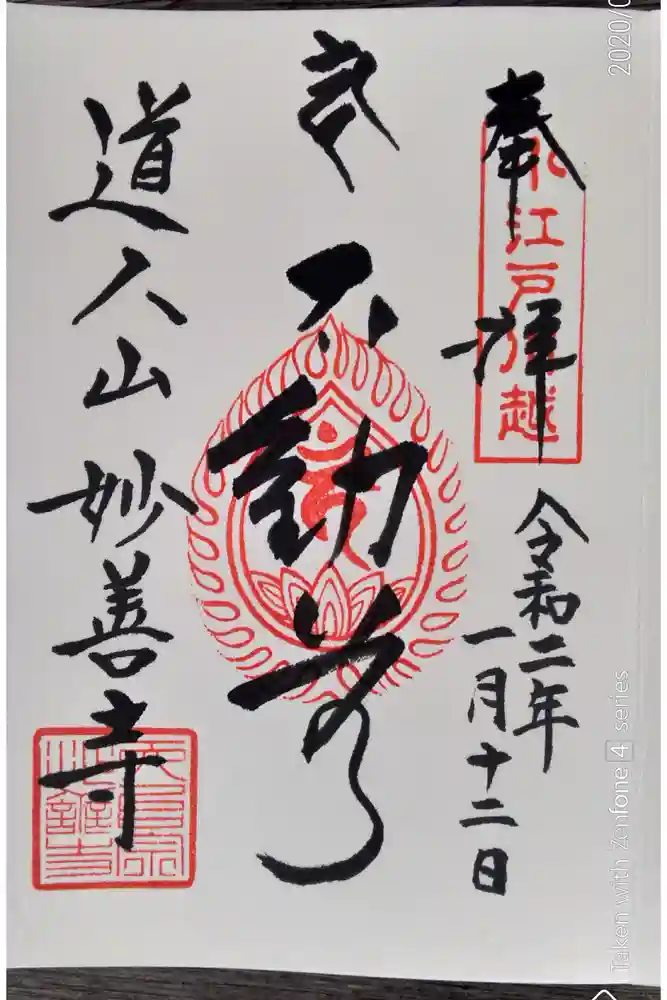 奉拝
小江戸川越
令和二年
一月十二日
不動尊
道人山妙善寺
2020/0
Taken with Zenfone 4 series